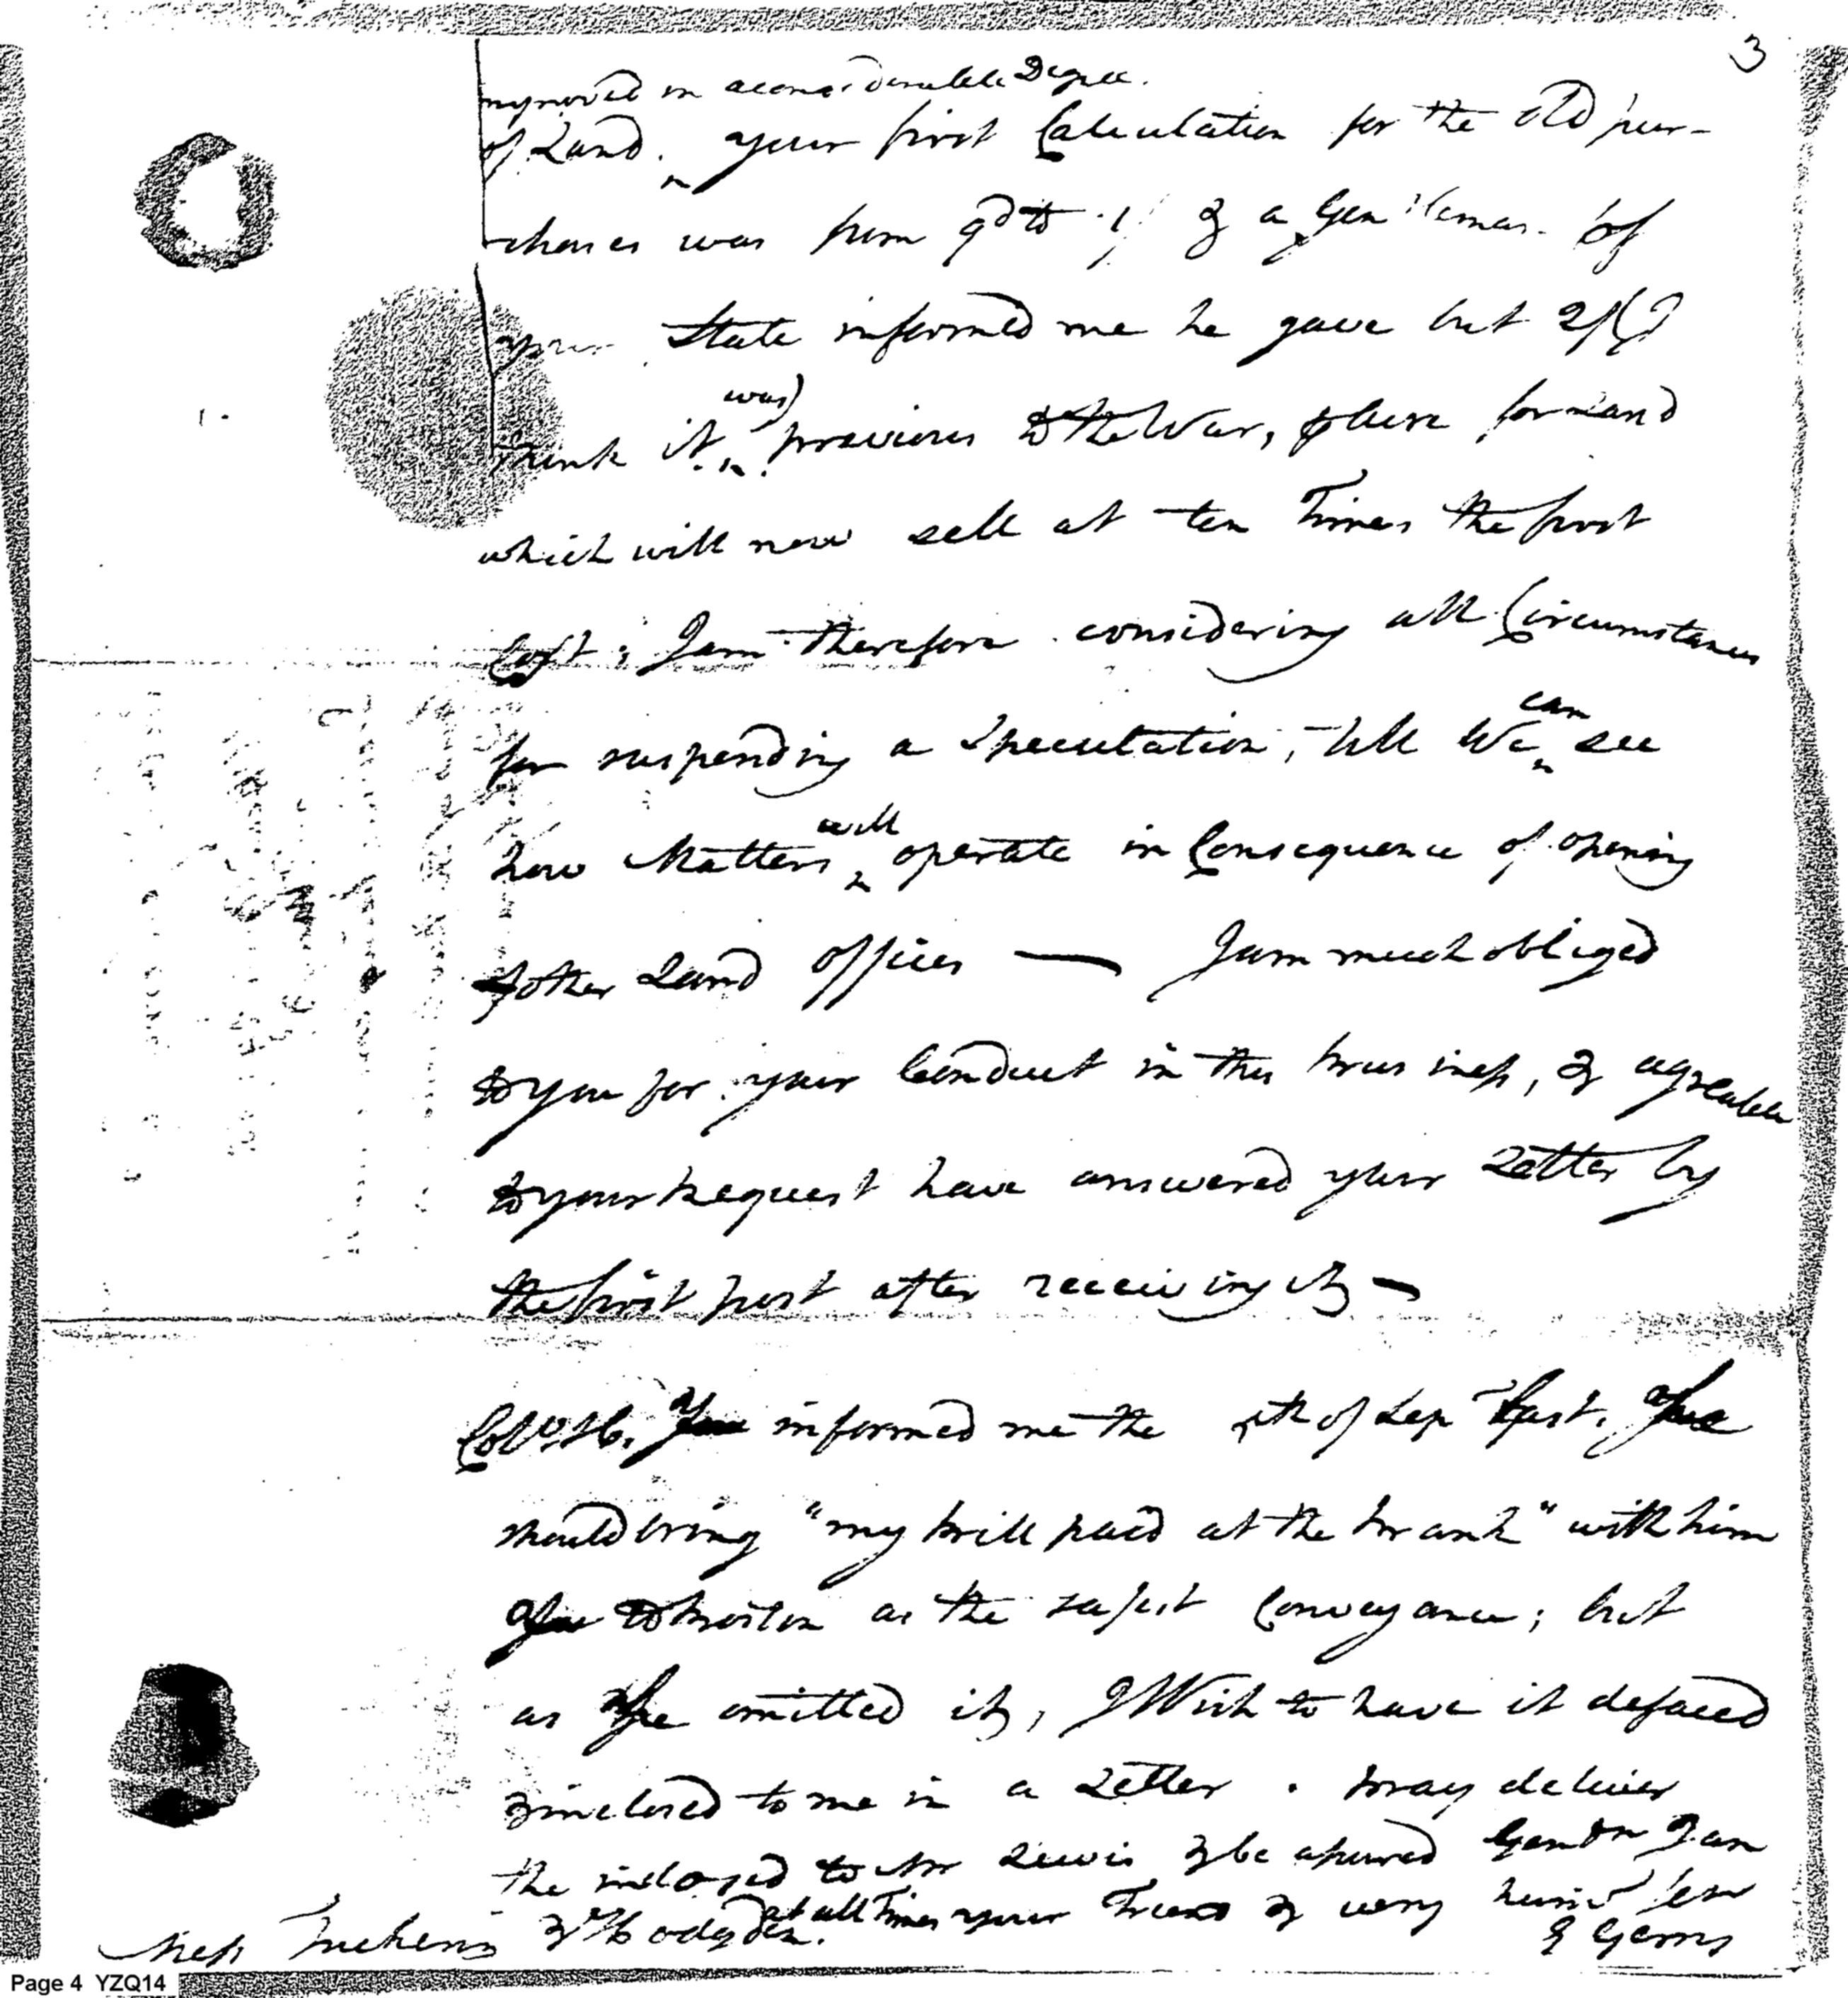 3
improved in a considerable Degree.
of Land. your first Calculation for the old pur-
-chases was from 9d to 1/ & a Gentleman of
your State informed me he gave but 2/(I
think it was) previous to the War, there for Land
which will now sell at ten Times the first
Cost; I am therefore considering all Circumstances
for suspending a Speculation, till We can see
how Matters will operate in Consequence of opening
other Land offices — I am much obliged
to you for your Conduct in this business, & agreable
to your Request have answered your Letter by
the first post after receiving it —
Colo. H. informed me the of Sep last, he
should bring "my bill paid at the bank" with him
to Boston as the safest Conveyance; but
as he omitted it, I Wish to have it defaced
& inclosed to me in a Letter. pray deliver
the inclosed to Mr Lewis & be assured Gentn I am
at all Times your Friend & very huml ser
E Gerry
Mess Pickering & Hodgdon.
Page 4 YZQ14